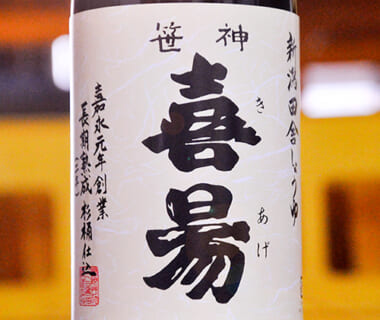 新潟田舎しょうゆ
笹神
喜昜
きあげ
嘉永元年創業
長期熟成杉桶仕込